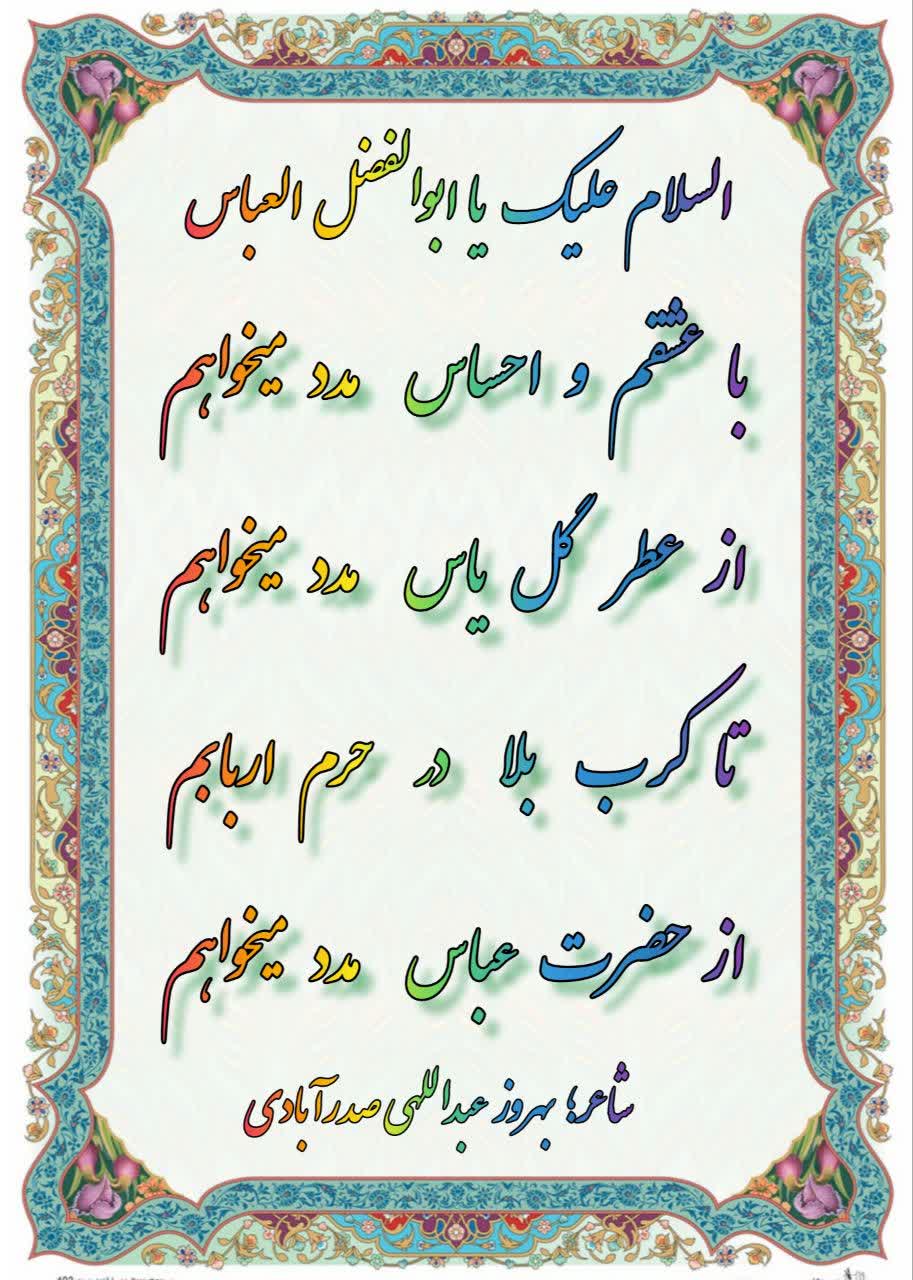 السلام علیک یا ابوالفضل العباس
با عشقم و احساس مدد میخواهم
از عطر گل یاس مدد میخواهم
تا کرب بلا در حرم اربابم
از حضرت عباس مدد میخواهم
شاعر؛ بهروز عبداللهی صدرآبادی